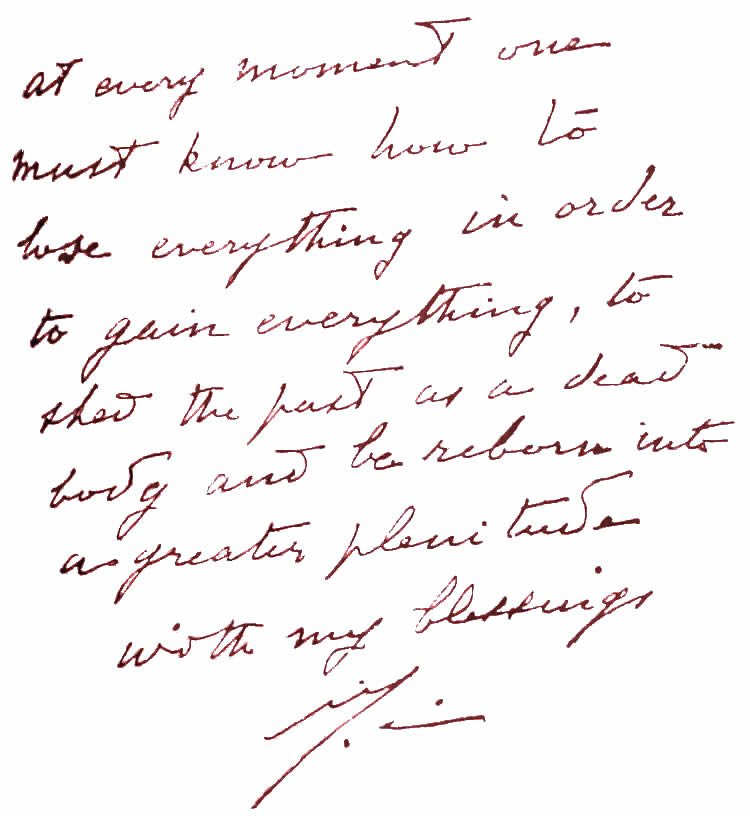 at every moment one
must know how to
lose everything in order
to gain everything, to
shed the past as a dead
body and be reborn into
a greater plenitude
with my blessings